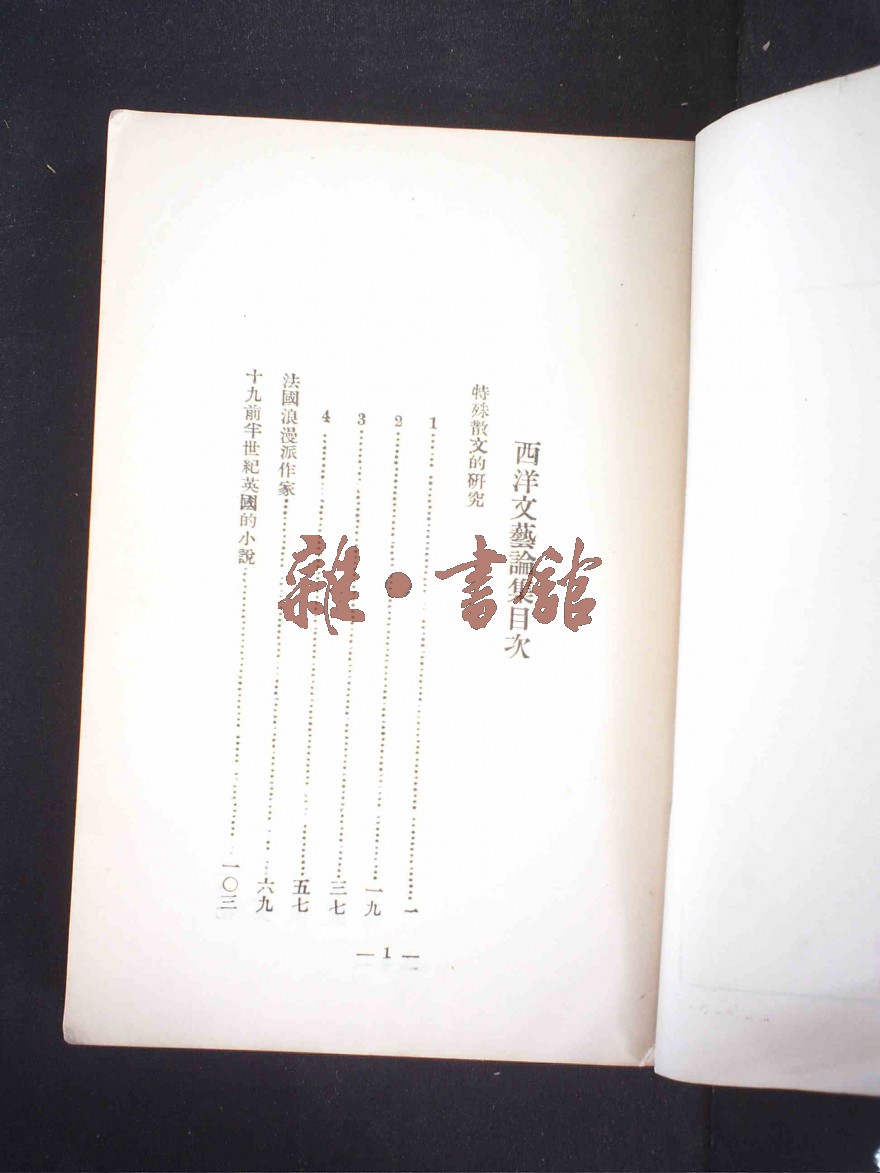 西洋文藝論集目次
特殊散文的研究
1……一
2……一九
3……三七
4……五七
法國浪漫派作家……六九
十九前半世紀英國的小說……一〇三
— 1 —
雜·書館